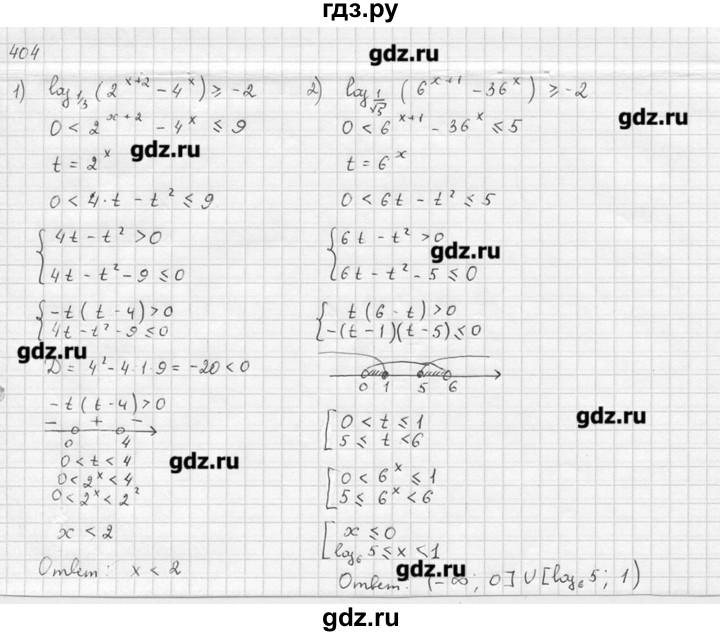 гдз.ру
404
gdz.ru
1) log_{1/3} (2^{x+2} - 4^x) ≥ -2
0 < 2^{x+2} - 4^x ≤ 9
gdz.ru
t = 2^x
0 < 4·t - t² ≤ 9
{ 4t - t² > 0
4t - t² - 9 ≤ 0
{ -t(t-4) > 0
4t - t² - 9 ≤ 0
gdz.ru
D = 4² - 4·1·9 = -20 < 0
-t(t-4) > 0
- + -
0 4
0 < t < 4
gdz.ru
0 < 2^x < 4
0 < 2^x < 2²
x < 2
Ответ: x < 2
2) log_{1/√5} (6^{x+1} - 36^x) ≥ -2
gdz.ru
0 < 6^{x+1} - 36^x ≤ 5
t = 6^x
0 < 6t - t² ≤ 5
{ 6t - t² > 0
gdz.ru
6t - t² - 5 ≤ 0
{ t(6-t) > 0
-(t-1)(t-5) ≤ 0
0 1 5 6
[ 0 < t ≤ 1
gdz.ru
5 ≤ t < 6
[ 0 < 6^x ≤ 1
5 ≤ 6^x < 6
[ x ≤ 0
log_6 5 ≤ x < 1
gdz.ru
Ответ: (-∞; 0] ∪ [log_6 5; 1)
gdz.ru